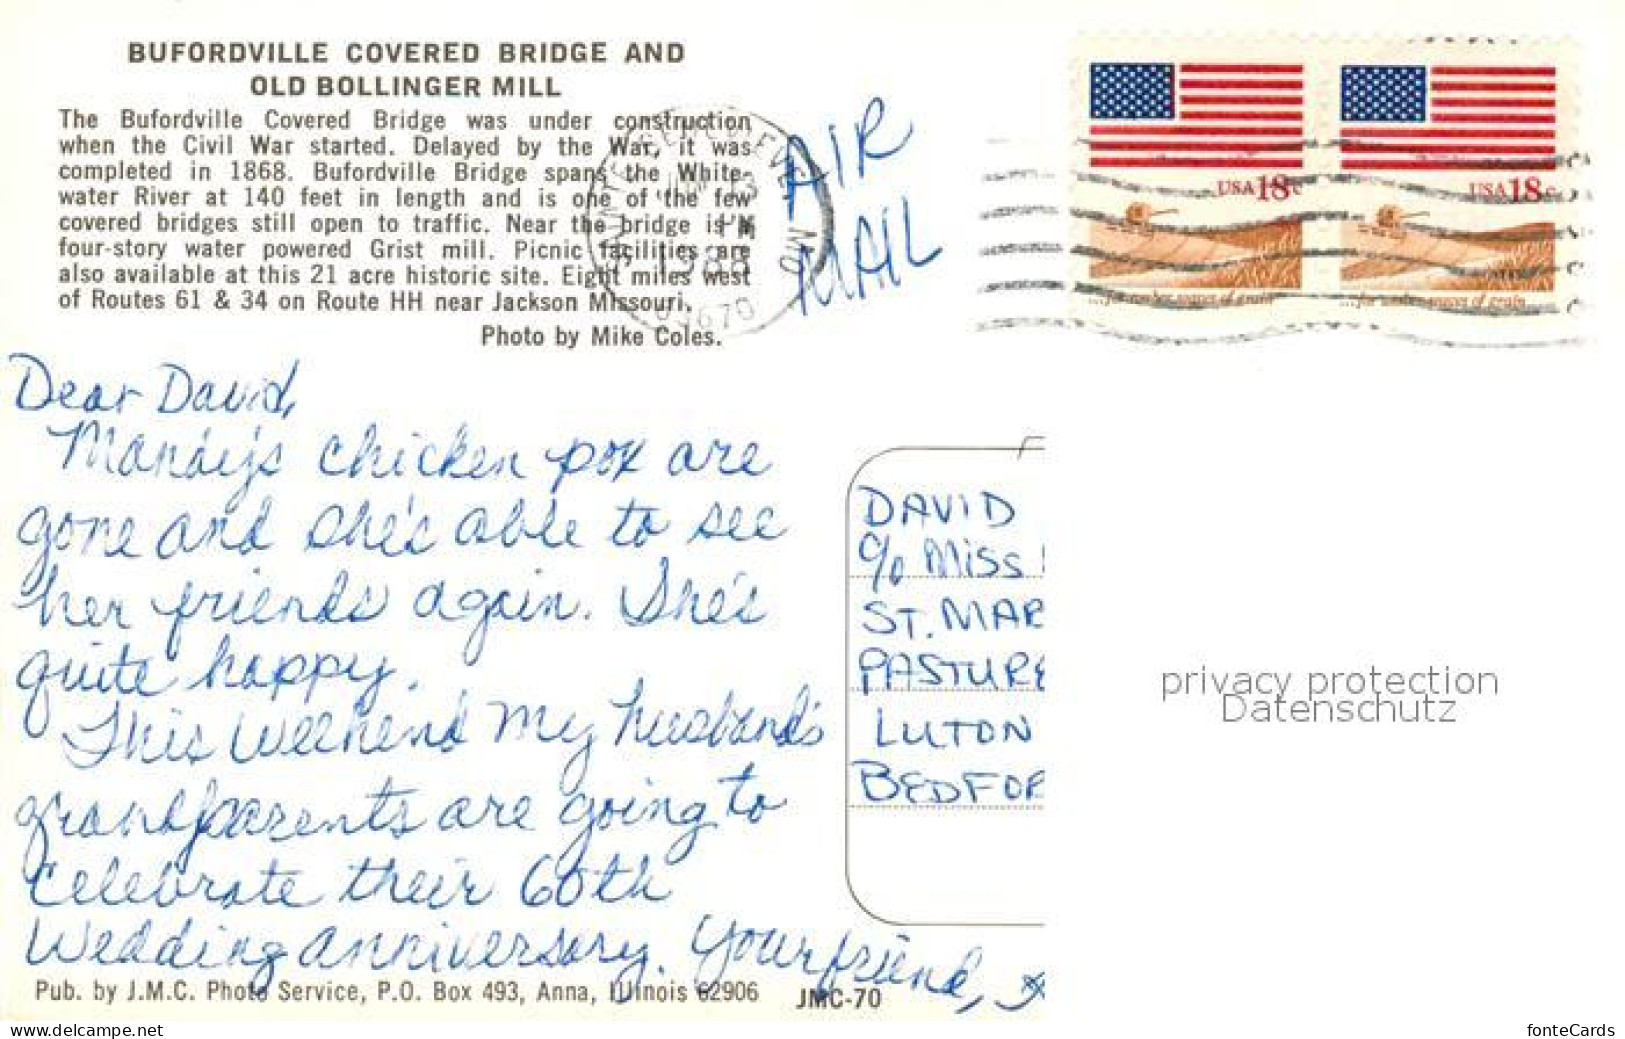 BUFORDVILLE COVERED BRIDGE AND
OLD BOLLINGER MILL
The Bufordville Covered Bridge was under construction
when the Civil War started. Delayed by the War, it was
completed in 1868. Bufordville Bridge spans the White-
water River at 140 feet in length and is one of the few
covered bridges still open to traffic. Near the bridge is a
four-story water powered Grist mill. Picnic facilities are
also available at this 21 acre historic site. Eight miles west
of Routes 61 & 34 on Route HH near Jackson Missouri.
Photo by Mike Coles.
AIR
MAIL
USA 18c
USA 18c
...for amber waves of grain
...for amber waves of grain
MO
63670
Dear David,
Mandy's chicken pox are
gone and she's able to see
her friends again. She's
quite happy.
This weekend my husband's
grandparents are going to
celebrate their 60th
Wedding anniversary. Your friend,
DAVID
c/o MISS
ST. MAR
PASTURE
LUTON
BEDFOR
privacy protection
Datenschutz
Pub. by J.M.C. Photo Service, P.O. Box 493, Anna, Illinois 62906 JMC-70
www.delcampe.net
fonteCards